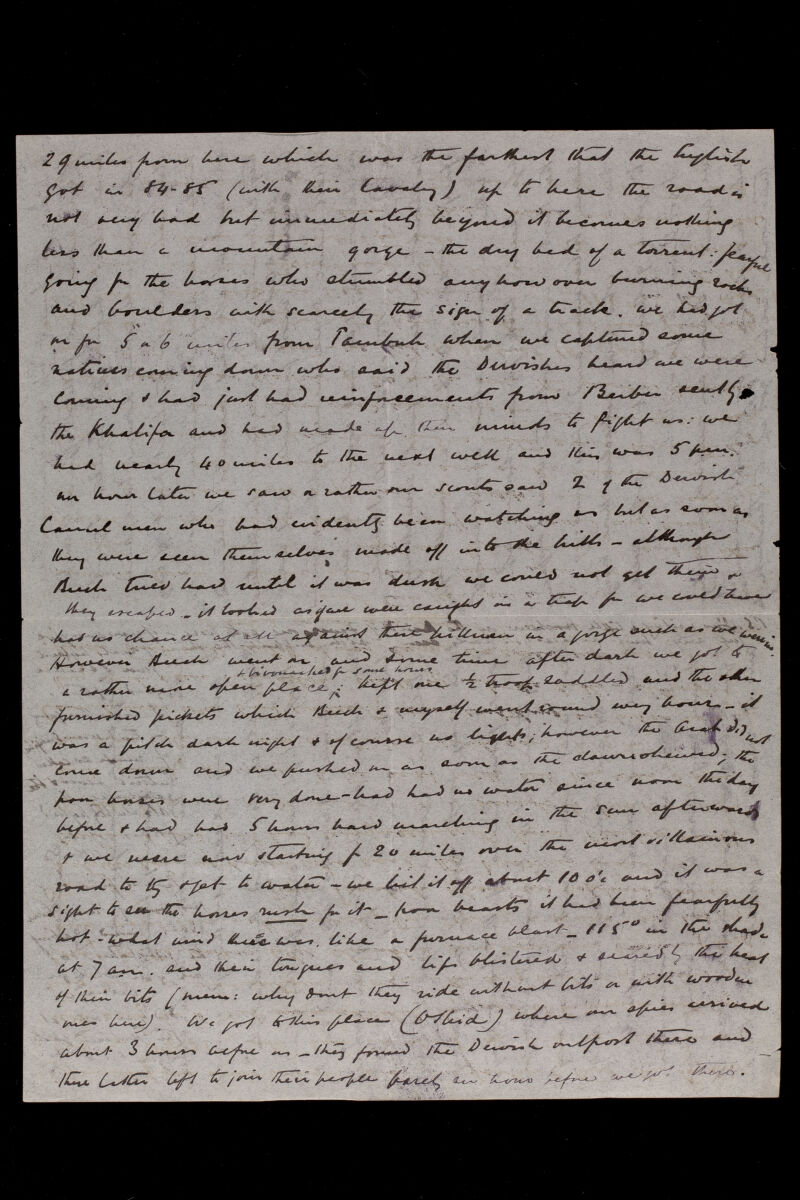 29 miles from here which was the farthest that the English
got in 84-85 (with their Cavalry) up to here the road is
not very bad but immediately beyond it becomes nothing
less than a mountain gorge – the dry bed of a torrent: fearful
going for the horses who stumbled anyhow over burning rocks
and boulders with scarcely the sign of a track. we had got
on for 5 or 6 miles from Tambuk when we captured some
natives coming down who said the Dervishes heard we were
coming & had just had reinforcements from Berber sent by
the Khalifa and had made up their minds to fight us: we
had nearly 40 miles to the next well and this was 5 p.m.
an hour later we saw or rather our scouts saw 2 of the Dervish
Camel men who had evidently been watching us but as soon as
they were seen themselves made off into the hills – although
Beech tried hard until it was dusk we could not get them &
they escaped – it looked as if we were caught in a trap for we could have
had no chance at all against these hillmen in a gorge such as we were in.
However Beech went on and some time after dark we got to
& bivouacked for some hours
a rather more open place; kept one ½ troop saddled and the other
furnished pickets which Beech & myself went round every hour – it
was a pitch dark night & of course no lights; however the Arabs did not
come down and we pushed on as soon as the dawn showed; the
poor horses were very done – had had no water since noon the day
before & had had 5 hours hard marching in the sun afterwards
& we were now starting for 20 miles over the most villainous
road to try & get to water – we hit it off about 10 o'c and it was a
sight to see the horses rush for it – poor beasts it had been fearfully
hot – what wind there was, like a furnace blast – 115° in the shade
at 7 am. and their tongues and lips blistered & seared by the heat
of their bits (mem: why dont they ride without bits or with wooden
ones here). We got to this place (Obid) where our spies arrived
about 3 hours before us – they found the Dervish outpost there and
these latter left to join their people barely an hour before we got there.